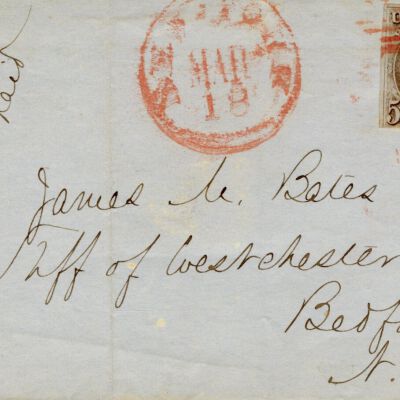 Paid
MAR
18
5
James M. Bates
Shff of Westchester
Bedf
N.